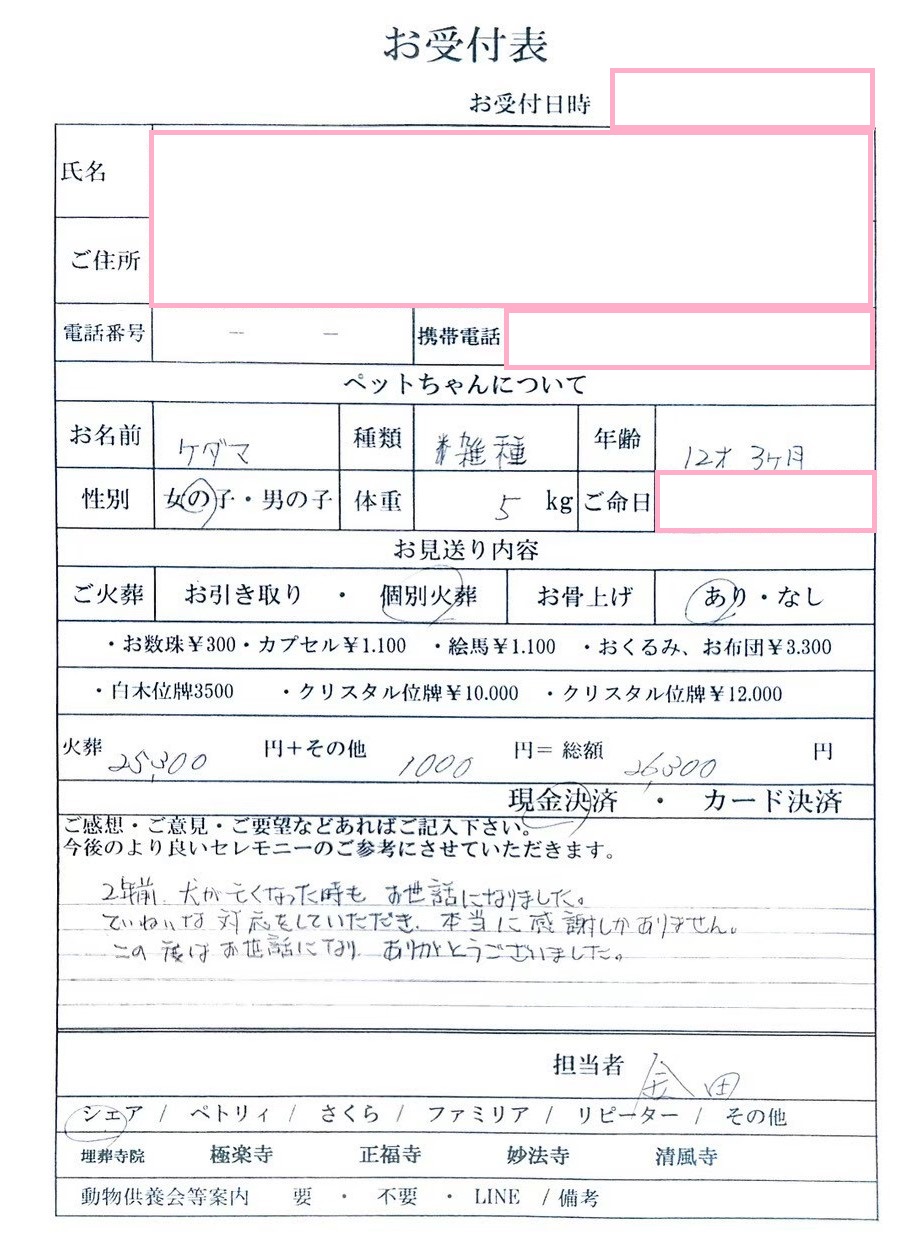 お受付表
お受付日時
氏名
ご住所
電話番号 ― ― 携帯電話
ペットちゃんについて
お名前 ケダマ 種類 雑種 年齢 12才 3ヶ月
性別 女の子・男の子 体重 5 kg ご命日
お見送り内容
ご火葬 お引き取り ・ 個別火葬 お骨上げ あり・なし
・お数珠¥300・カプセル¥1.100 ・絵馬¥1.100 ・おくるみ、お布団¥3.300
・白木位牌3500 ・クリスタル位牌¥10.000 ・クリスタル位牌¥12.000
火葬 25,300 円+その他 1000 円= 総額 26,300 円
現金決済 ・ カード決済
ご感想・ご意見・ご要望などあればご記入下さい。
今後のより良いセレモニーのご参考にさせていただきます。
2年前、犬が亡くなった時も お世話になりました。
ていねいな対応をしていただき、本当に感謝しかありません。
この度はお世話になり、ありがとうございました。
担当者 金田
シェア / ペトリィ / さくら / ファミリア / リピーター / その他
埋葬寺院 極楽寺 正福寺 妙法寺 清風寺
動物供養会等案内 要 ・ 不要 ・ LINE / 備考